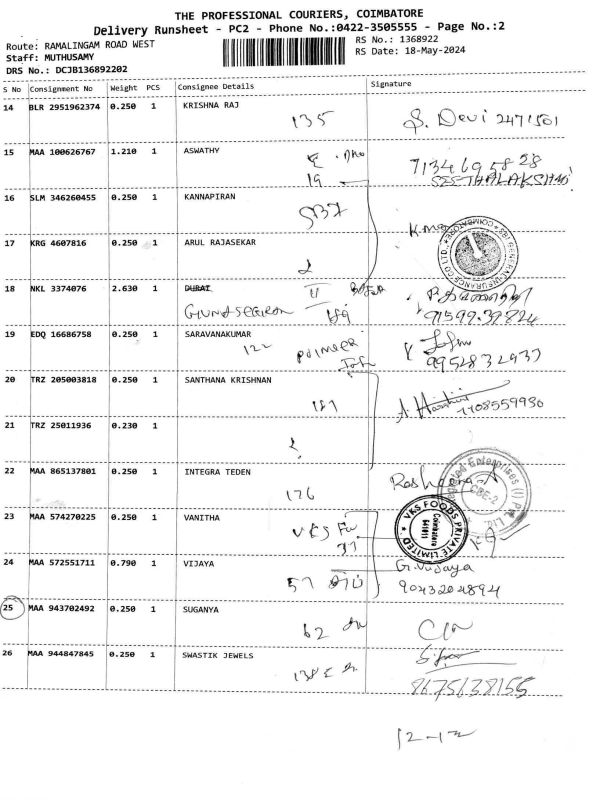 THE PROFESSIONAL COURIERS, COIMBATORE
Delivery Runsheet - PC2 - Phone No.:0422-3505555 - Page No.:2
Route: RAMALINGAM ROAD WEST
RS No.: 1368922
Staff: MUTHUSAMY
RS Date: 18-May-2024
DRS No.: DCJB136892202
S No Consignment No Weight PCS Consignee Details Signature
14 BLR 2951962374 0.250 1 KRISHNA RAJ
135 S. Devi 2471501
15 MAA 100626767 1.210 1 ASWATHY
19 7134695828
SEETHALAKSHMI
16 SLM 346260455 0.250 1 KANNAPIRAN
17 KRG 4607816 0.250 1 ARUL RAJASEKAR
SBI GENERAL INSURANCE CO LTD. COIMBATORE
18 NKL 3374076 2.630 1 DUBAI
11
91599.39824
19 EDQ 16686758 0.250 1 SARAVANAKUMAR
122
9952832937
20 TRZ 205003818 0.250 1 SANTHANA KRISHNAN
187
7708559930
21 TRZ 25011936 0.230 1
22 MAA 865137801 0.250 1 INTEGRA TEDEN
176
Integrated Enterprises (I) Pvt. Ltd. CBE-2
23 MAA 574270225 0.250 1 VANITHA
VKS
37
VKS FOODS PRIVATE LIMITED Coimbatore 641011
24 MAA 572551711 0.790 1 VIJAYA
57
G. Vijaya
9043204894
25 MAA 943702492 0.250 1 SUGANYA
62
26 MAA 944847845 0.250 1 SWASTIK JEWELS
138
8675638155
12-12